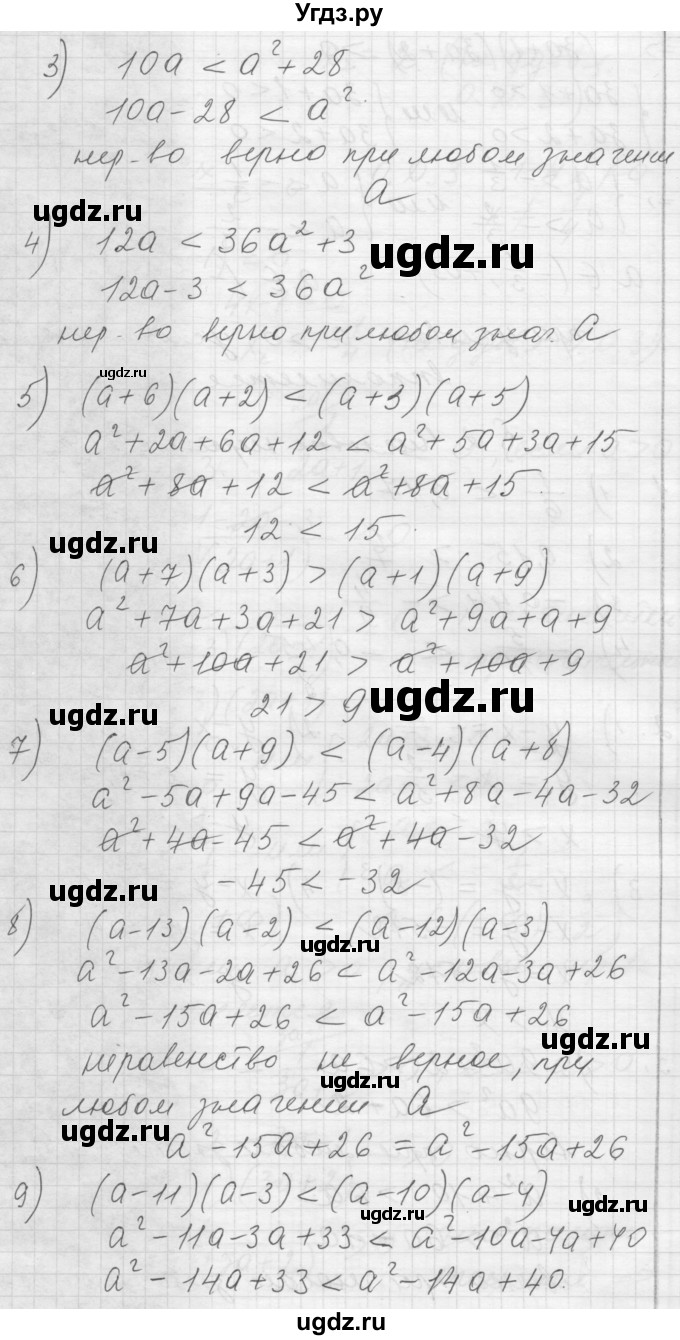 Угдз.ру
3) 10a < a² + 28
10a - 28 < a².
нер-во верно при любом значении
a
ugdz.ru
4) 12a < 36a² + 3
ugdz.ru
12a - 3 < 36a²
нер-во верно при любом знач. a
ugdz.ru
5) (a+6)(a+2) < (a+3)(a+5)
a² + 2a + 6a + 12 < a² + 5a + 3a + 15
a² + 8a + 12 < a² + 8a + 15.
12 < 15.
ugdz.ru
6) (a+7)(a+3) > (a+1)(a+9)
a² + 7a + 3a + 21 > a² + 9a + a + 9
a² + 10a + 21 > a² + 10a + 9
21 > 9
ugdz.ru
ugdz.ru
7) (a-5)(a+9) < (a-4)(a+8)
a² - 5a + 9a - 45 < a² + 8a - 4a - 32
a² + 4a - 45 < a² + 4a - 32
-45 < -32
ugdz.ru
8) (a-13)(a-2) < (a-12)(a-3)
ugdz.ru
a² - 13a - 2a + 26 < a² - 12a - 3a + 26
a² - 15a + 26 < a² - 15a + 26
ugdz.ru
неравенство не верное, при
ugdz.ru
любом значении a
ugdz.ru
a² - 15a + 26 = a² - 15a + 26
9) (a-11)(a-3) < (a-10)(a-4)
ugdz.ru
ugdz.ru
a² - 11a - 3a + 33 < a² - 10a - 4a + 40
a² - 14a + 33 < a² - 14a + 40.
ugdz.ru